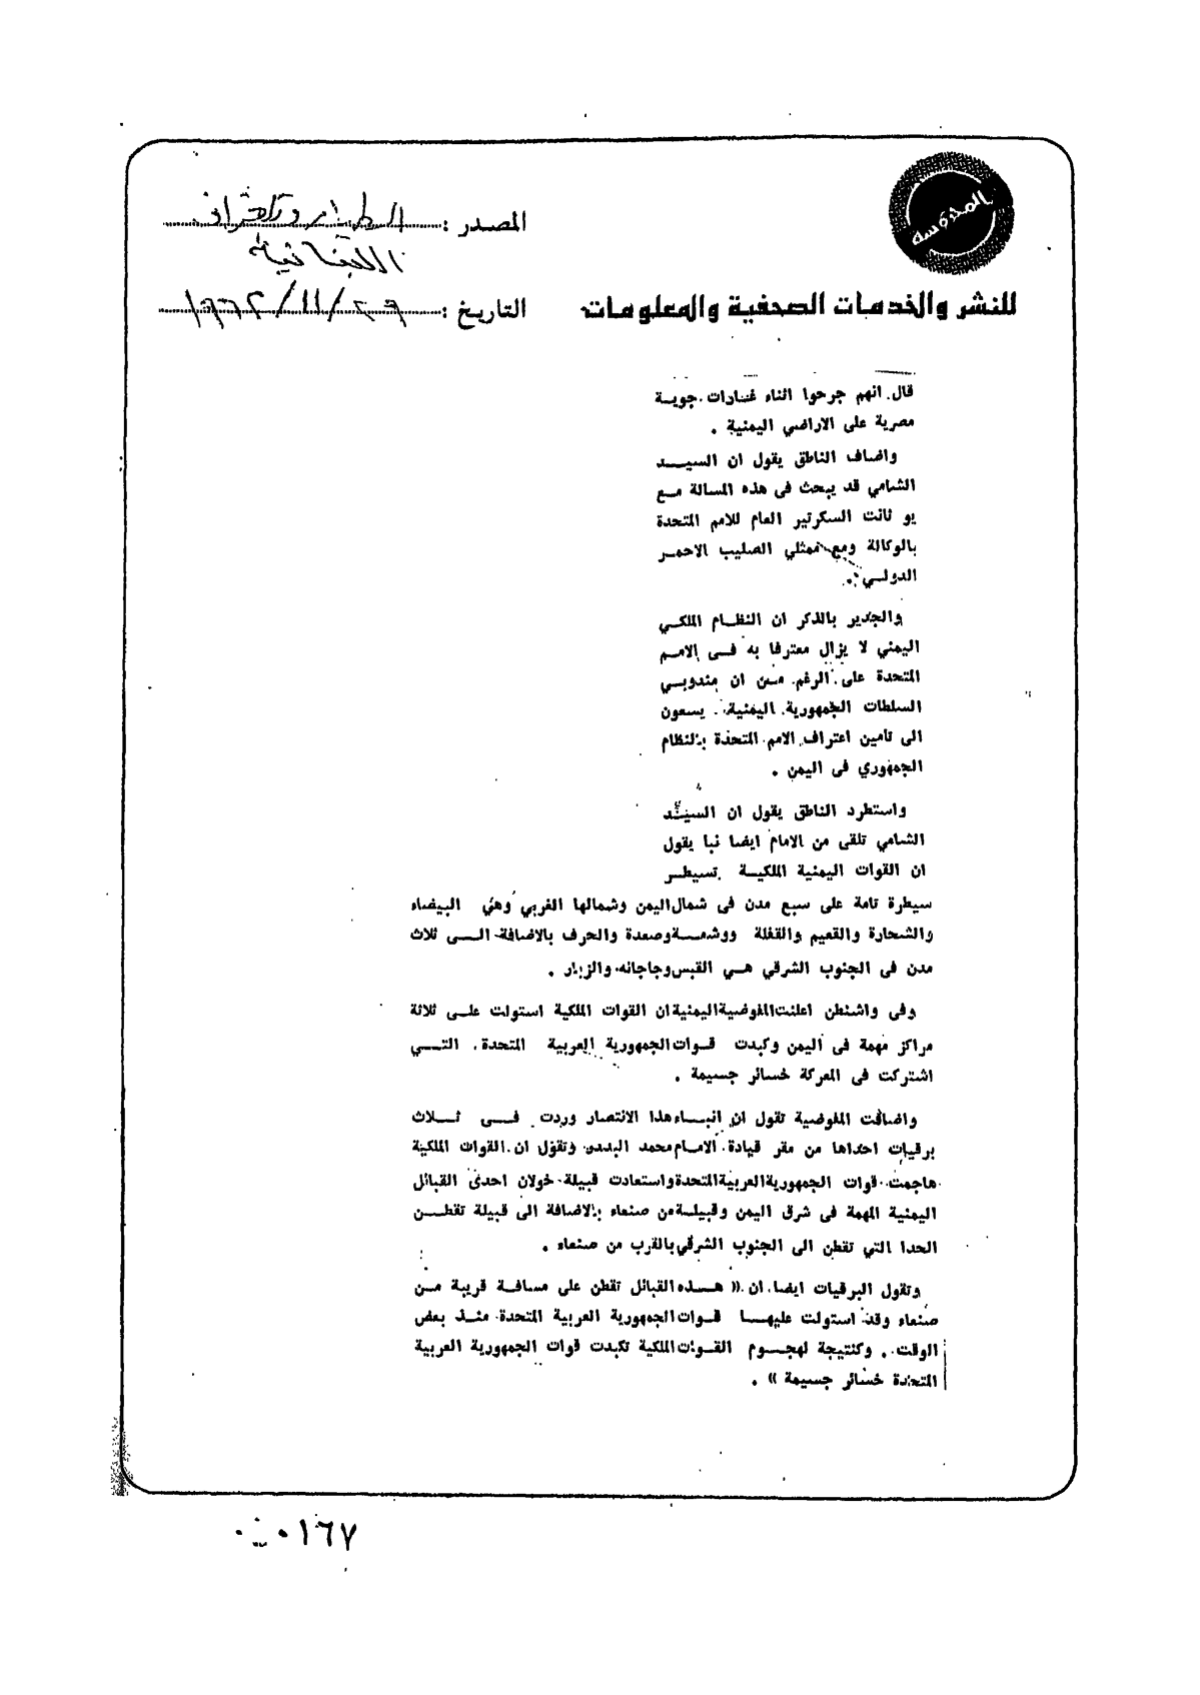 المدرسة
للنشر والخدمات الصحفية والمعلومات
المصدر :
اللبنانية
التاريخ : ٢٩/١١/١٩٦٢
قال انهم جرحوا اثناء غارات جويـة
مصرية على الاراضي اليمنية .
واضاف الناطق يقول ان السيـــد
الشامي قد يبحث في هذه المسالة مـع
يو ثانت السكرتير العام للامم المتحدة
بالوكالة ومع ممثلي الصليب الاحمـر
الدولـي .
والجدير بالذكر ان النظـام الملكـي
اليمني لا يزال معترفا به فـى الامـم
المتحدة على الرغم مـن ان مندوبـي
السلطات الجمهورية اليمنية يسعون
الى تامين اعتراف الامم المتحدة بالنظام
الجمهوري في اليمن .
واستطرد الناطق يقول ان السيـد
الشامي تلقى من الامام ايضا نبا يقول
ان القوات اليمنية الملكيـة تسيطـر
سيطرة تامة على سبع مدن في شمال اليمن وشمالها الغربي وهي البيضاء
والشحارة والقعيم والقفلة ووشمـة وصعدة والحرف بالاضافة الـى ثلاث
مدن في الجنوب الشرقي هـي القبس وجاجانه والزبار .
وفي واشنطن اعلنت المفوضية اليمنية ان القوات الملكية استولت علـى ثلاثة
مراكز مهمة في اليمن وكبدت قـوات الجمهورية العربية المتحدة التـي
اشتركت في المعركة خسائر جسيمة .
واضافت المفوضية تقول ان انبـاء هذا الانتصار وردت فـى ثـلاث
برقيات احداها من مقر قيادة الامـام محمد البدر وتقول ان القوات الملكية
هاجمت قوات الجمهورية العربية المتحدة واستعادت قبيلة خولان احدى القبائل
اليمنية المهمة في شرق اليمن وقبيلـة من صنعاء بالاضافة الى قبيلة تقطـن
الحدا التي تقطن الى الجنوب الشرقي بالقرب من صنعاء .
وتقول البرقيات ايضا ان « هـذه القبائل تقطن على مسافـة قريبة مـن
صنعاء وقد استولت عليهـا قـوات الجمهورية العربية المتحدة منـذ بعض
الوقت . وكنتيجة لهجـوم القـوات الملكية تكبدت قوات الجمهورية العربية
المتحدة خسائر جسيمة » .
٠١٦٧